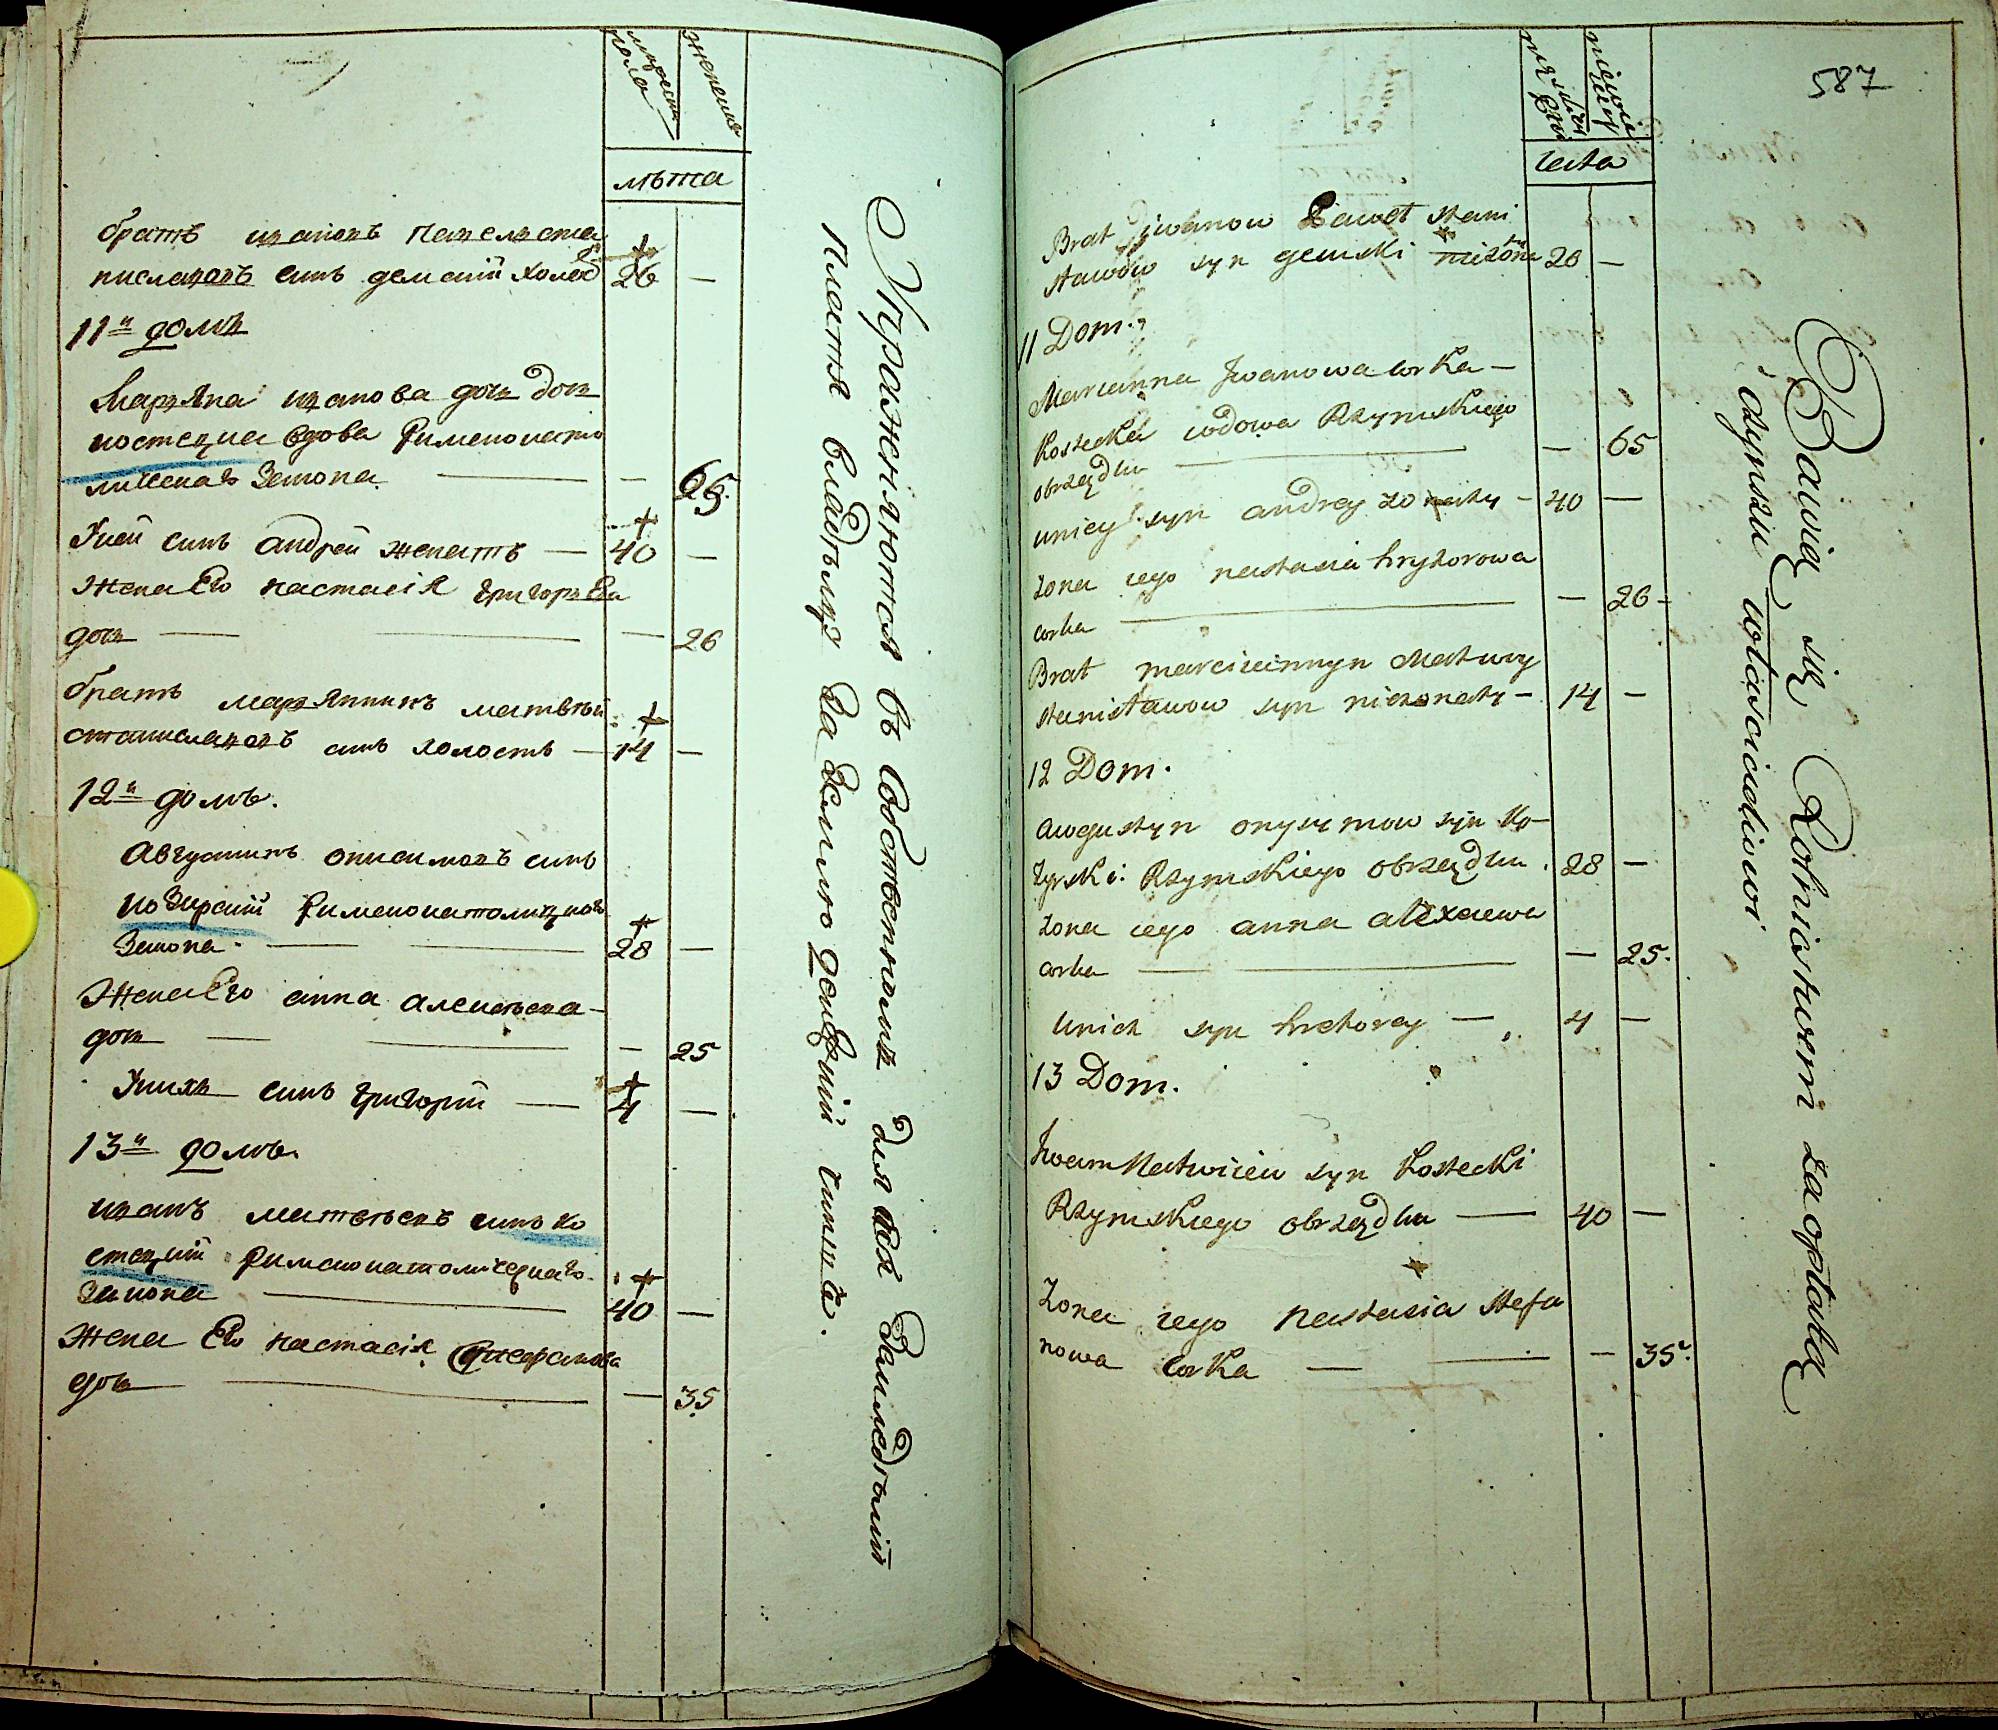 мужеска
пола
женска
лѣта
братъ ивановъ павелъ ста
ниславовъ синъ демскій холос
26 —
11й домъ
Марянна иванова дочь
костецка вдова Римскокато
лическаго Закона — — 65
У ней синъ андрей женатъ — 40 —
Жена Его настасія григорьева
дочь — — 26
братъ маряннинъ матвѣй
станиславовъ синъ холостъ — 14 —
12й домъ.
Августинъ онисимовъ синъ
козирскій Римскокатолицкаго
Закона — 28 —
Жена Его анна алексѣева
дочь — — 25
У нихъ синъ григорій — 4 —
13й домъ.
иванъ матвѣевъ синъ ко
стецкій Римскокатолическаго
Закона — 40 —
Жена Его настасія стефанова
дочь — — 35
Упражняются въ собственномъ для себя Замледѣліи
Платя владѣлцу за Землю денежній чиншъ.
587
lata
Brat Jwanow Paweł Stani
sławów syn gemski niżona 26 —
11 Dom.
Marianna Jwanowa corka —
Kostecka wdowa Rzymskiego
obrządku — — 65
u niey syn andrey żonaty — 40 —
żona iego nastasia hryhorowa
corka — — 26
Brat marciannyn Matwiy
stanisławow syn nieżonaty — 14 —
12 Dom.
awgustyn onysymow syn Ko-
zyrski Rzymskiego obrządku. 28 —
żona iego anna alexiejewa
corka — — 25.
unich syn hrehorey — 4 —
13 Dom.
Jwan Matwieiew syn Kostecki
Rzymskiego obrządku — 40 —
Żona iego Nastasia Stefa
nowa corka — — 35
Bawią się Rolnictwem za opłatą
czynszu włascicielowi